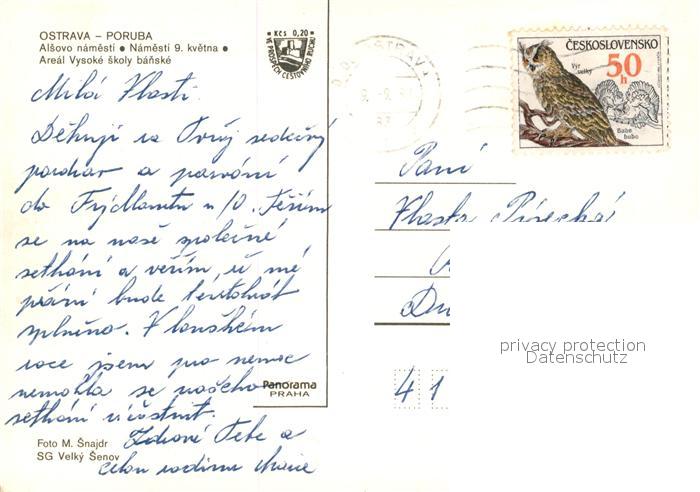 OSTRAVA – PORUBA
Alšovo náměstí ● Náměstí 9. května ●
Areál Vysoké školy báňské
● Kčs 0,20 ●
VE PROSPĚCH CESTOVNÍHO RUCHU
OSTRAVA
ČESKOSLOVENSKO
50 h
Výr velký
Bubo bubo
Milá Vlasti
Děkuji za Tvůj srdečný
pozdrav a pozvání
do Frýdlantu n/O. Těším
se na naše společné
setkání a věřím, že mé
přání bude tentokrát
splněno. V loňském
roce jsem pro nemoc
nemohla se našeho
setkání účastnit.
Zdraví Tebe a
celou rodinu
Paní
Vlasta
Du
41
privacy protection
Datenschutz
Panorama
PRAHA
Foto M. Šnajdr
SG Velký Šenov